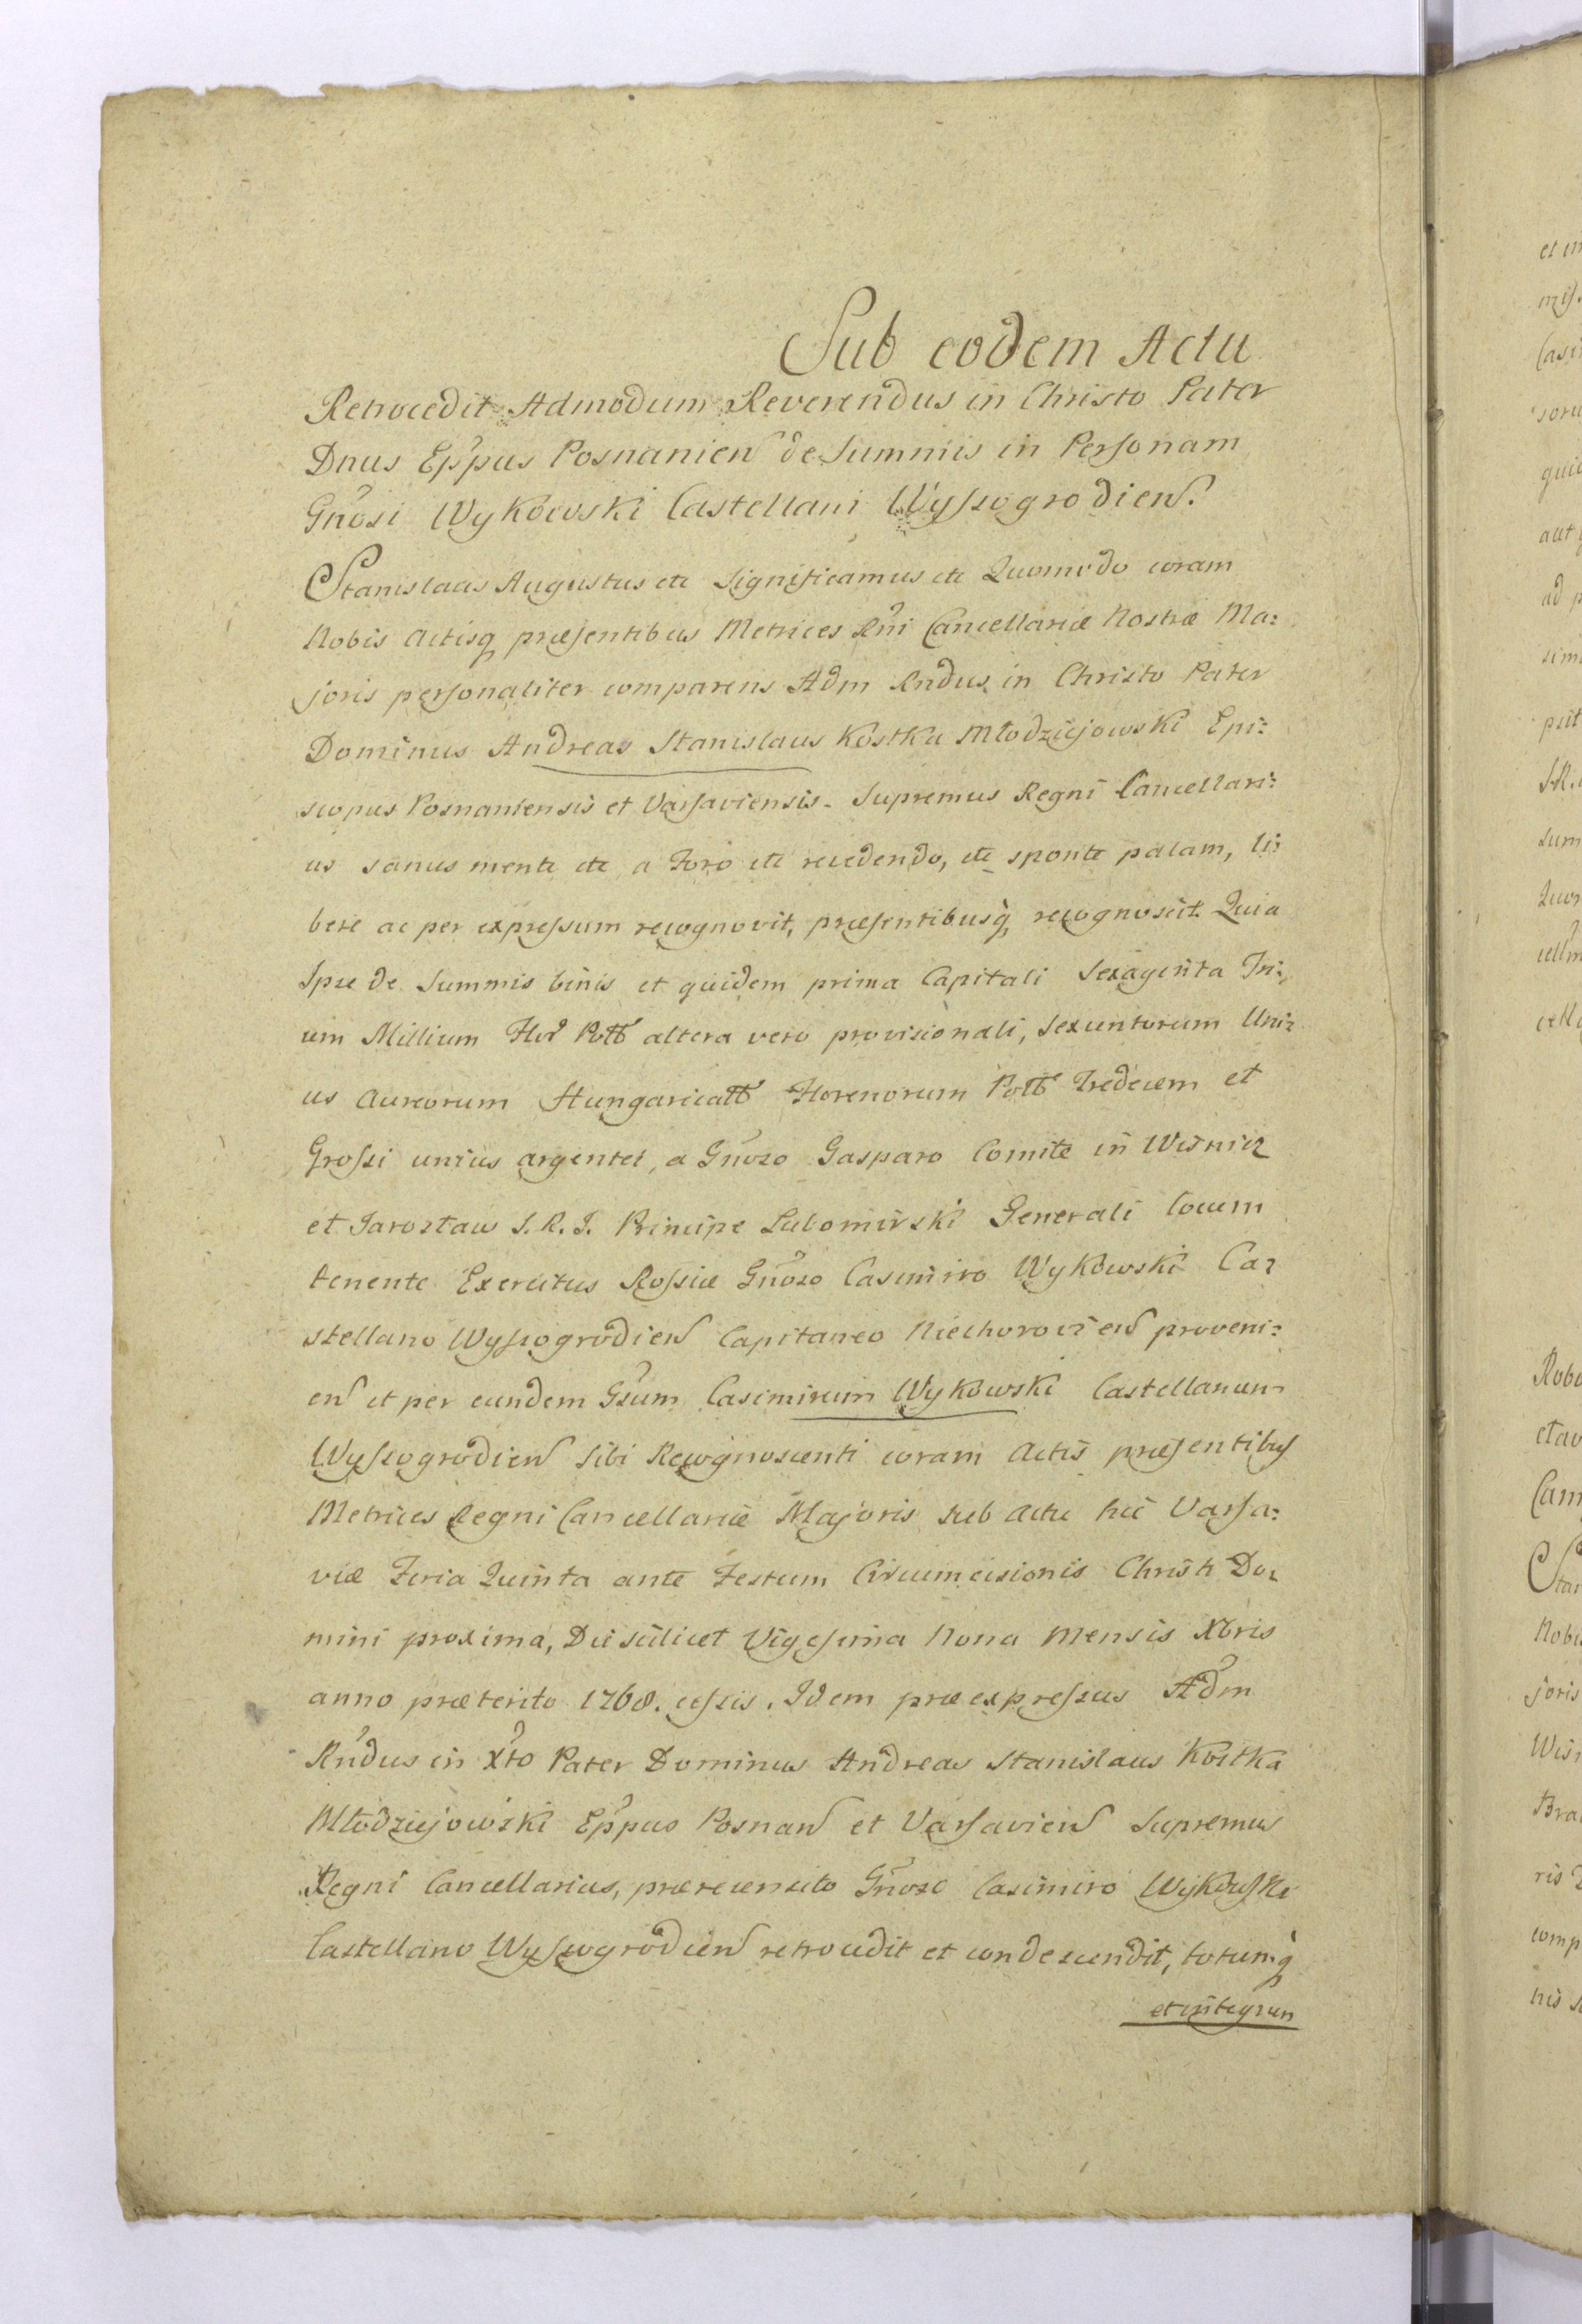 Sub eodem Actu
Retrocedit Admodum Reverendus in Christo Pater
Dnus Eppus Posnanien de Summis in Personam
Gnosi Wykowski Castellani Wyszogrodien.
Stanislaus Augustus etc Significamus etc Quomodo coram
Nobis Actisq praesentibus Metrices Rni Cancellariae Nostrae Ma:
joris personaliter comparens Adm Rndus in Christo Pater
Dominus Andreas Stanislaus Kostka Młodziejowski Epi:
scopus Posnaniensis et Varsaviensis. Supremus Regni Cancellari:
us sanus mente etc a Foro etc recedendo, etc sponte palam, li:
bere ac per expressum recognovit, praesentibusq, recognoscit. Quia
Ipse de Summis binis et quidem prima Capitali Sexaginta Tri:
um Millium Flor Poll altera vero provisionali, Sexcentorum Uni:
us Aureorum Hungaricall Florenorum Poll Tredecem et
Grossi unius argentei, a Gnoso Gasparo Comite in Wisnicz
et Jarosław S. R. I. Principe Lubomirski Generali locum
tenente Exercitus Rossiae Gnoso Casimiro Wykowski Ca:
stellano Wyszogrodien Capitaneo Niechorovien proveni:
en et per eundem Gsum Casimirum Wykowski Castellanum
Wyszogrodien sibi Recognoscenti coram Actis praesentibus
Metrices Regni Cancellariae Majoris sub actu hic Varsa:
viae Feria Quinta ante Festum Circumcisionis Christi Do:
mini proxima, Die scilicet Vigesima Nona Mensis Xbris
anno praeterito 1768. cessis. Idem praeexpressus Adm
Rndus in Xto Pater Dominus Andreas Stanislaus Kostka
Młodziejowski Eppus Posnan et Varsavien Supremus
Regni Cancellarius, praerecensito Gnoso Casimiro Wykowski
Castellano Wyszogrodien retrocedit et condescendit, totumq
et integrum